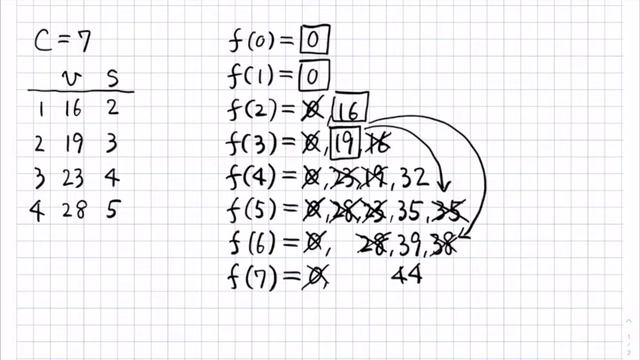 C = 7
v s
1 16 2
2 19 3
3 23 4
4 28 5
f(0) = 0
f(1) = 0
f(2) = 0, 16
f(3) = 0, 19, 16
f(4) = 0, 23, 19, 32
f(5) = 0, 28, 23, 35, 35
f(6) = 0, 28, 39, 38
f(7) = 0, 44